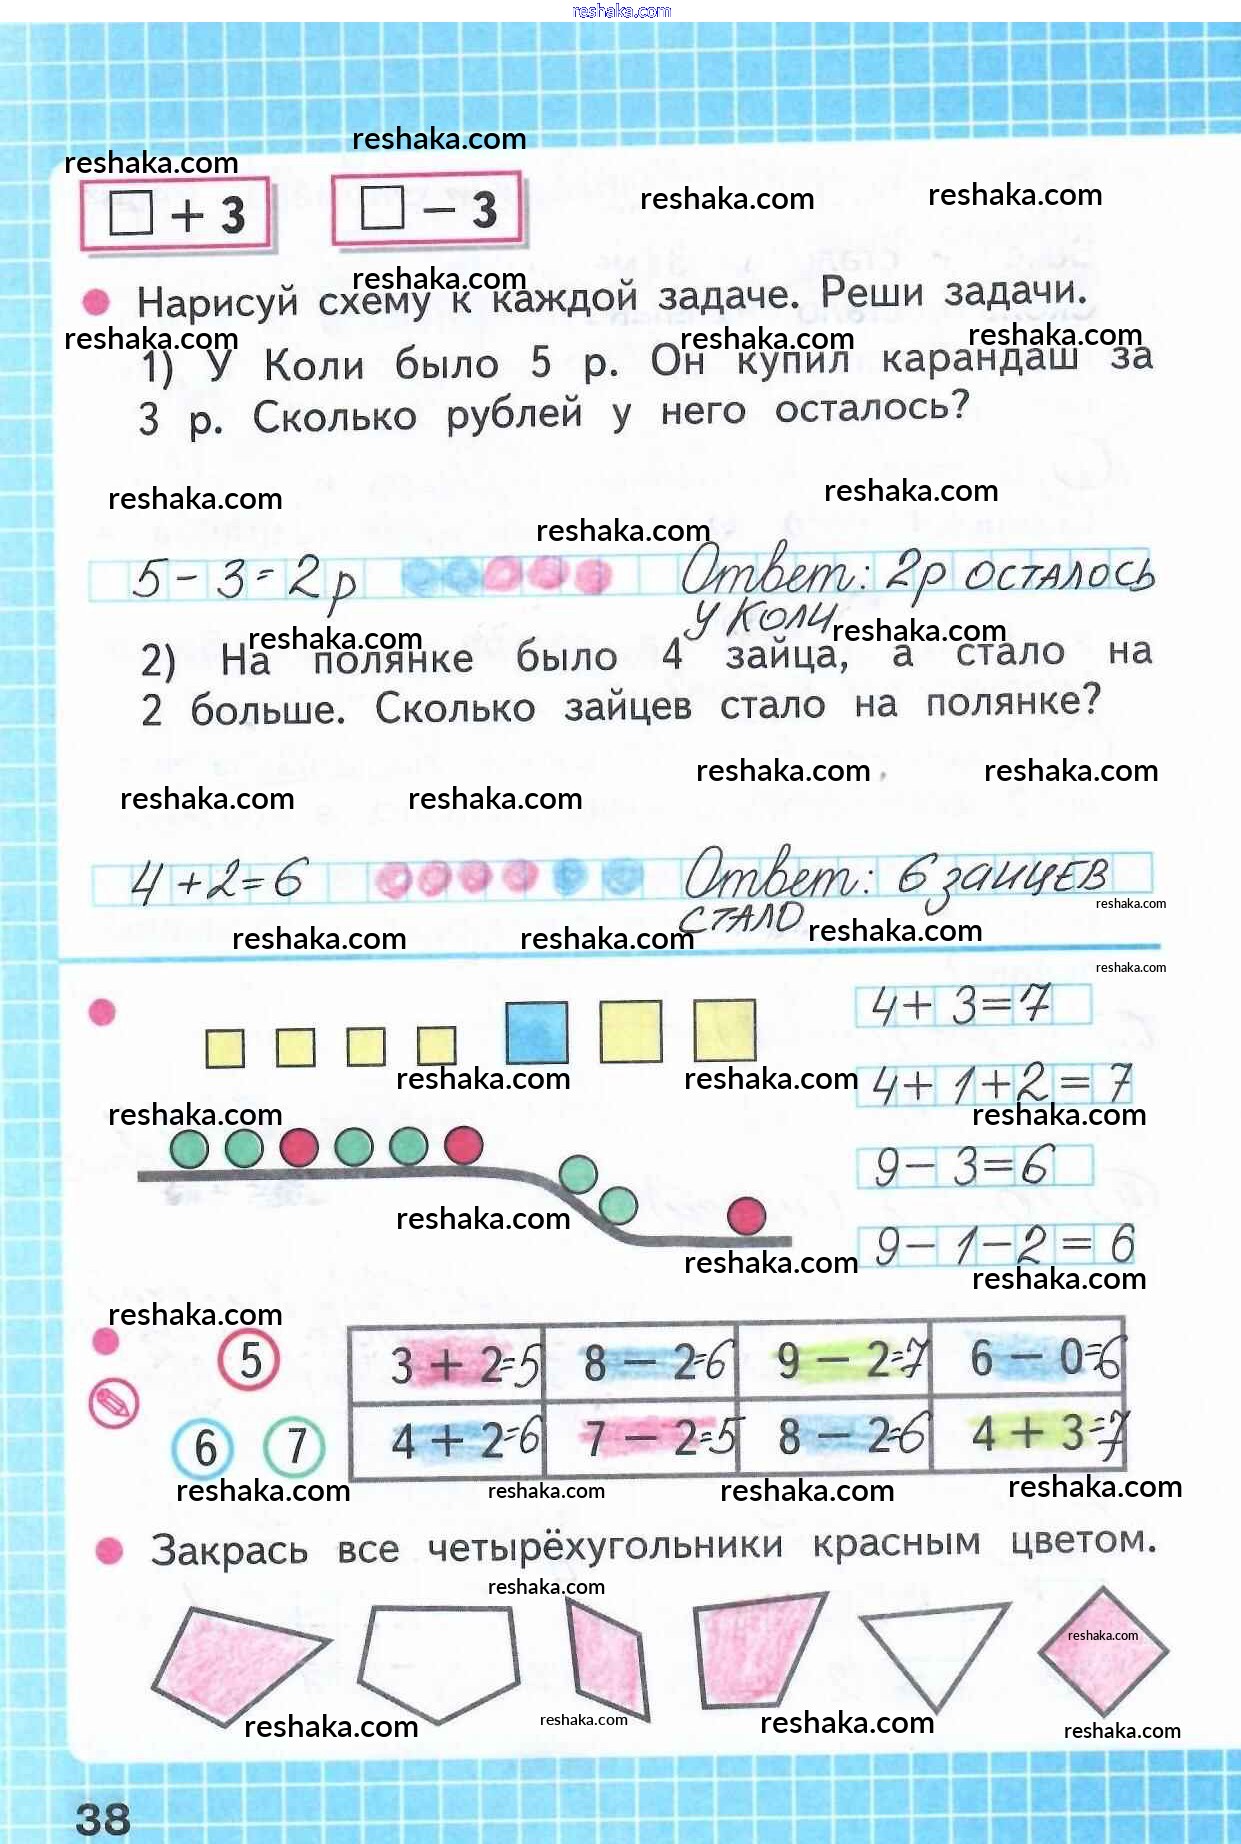 reshaka.com
reshaka.com
reshaka.com
reshaka.com
reshaka.com
□ + 3
□ − 3
reshaka.com
Нарисуй схему к каждой задаче. Реши задачи.
reshaka.com
reshaka.com
reshaka.com
1) У Коли было 5 р. Он купил карандаш за
3 р. Сколько рублей у него осталось?
reshaka.com
reshaka.com
reshaka.com
5 − 3 = 2 р
Ответ: 2р осталось
у Коли
reshaka.com
reshaka.com
2) На полянке было 4 зайца, а стало на
2 больше. Сколько зайцев стало на полянке?
reshaka.com
reshaka.com
reshaka.com
reshaka.com
4 + 2 = 6
Ответ: 6 зайцев
стало
reshaka.com
reshaka.com
reshaka.com
reshaka.com
reshaka.com
4 + 3 = 7
reshaka.com
reshaka.com
4 + 1 + 2 = 7
reshaka.com
reshaka.com
9 − 3 = 6
reshaka.com
9 − 1 − 2 = 6
reshaka.com
reshaka.com
reshaka.com
5
3 + 2 = 5
8 − 2 = 6
9 − 2 = 7
6 − 0 = 6
6
7
4 + 2 = 6
7 − 2 = 5
8 − 2 = 6
4 + 3 = 7
reshaka.com
reshaka.com
reshaka.com
reshaka.com
Закрась все четырёхугольники красным цветом.
reshaka.com
reshaka.com
reshaka.com
reshaka.com
reshaka.com
reshaka.com
38